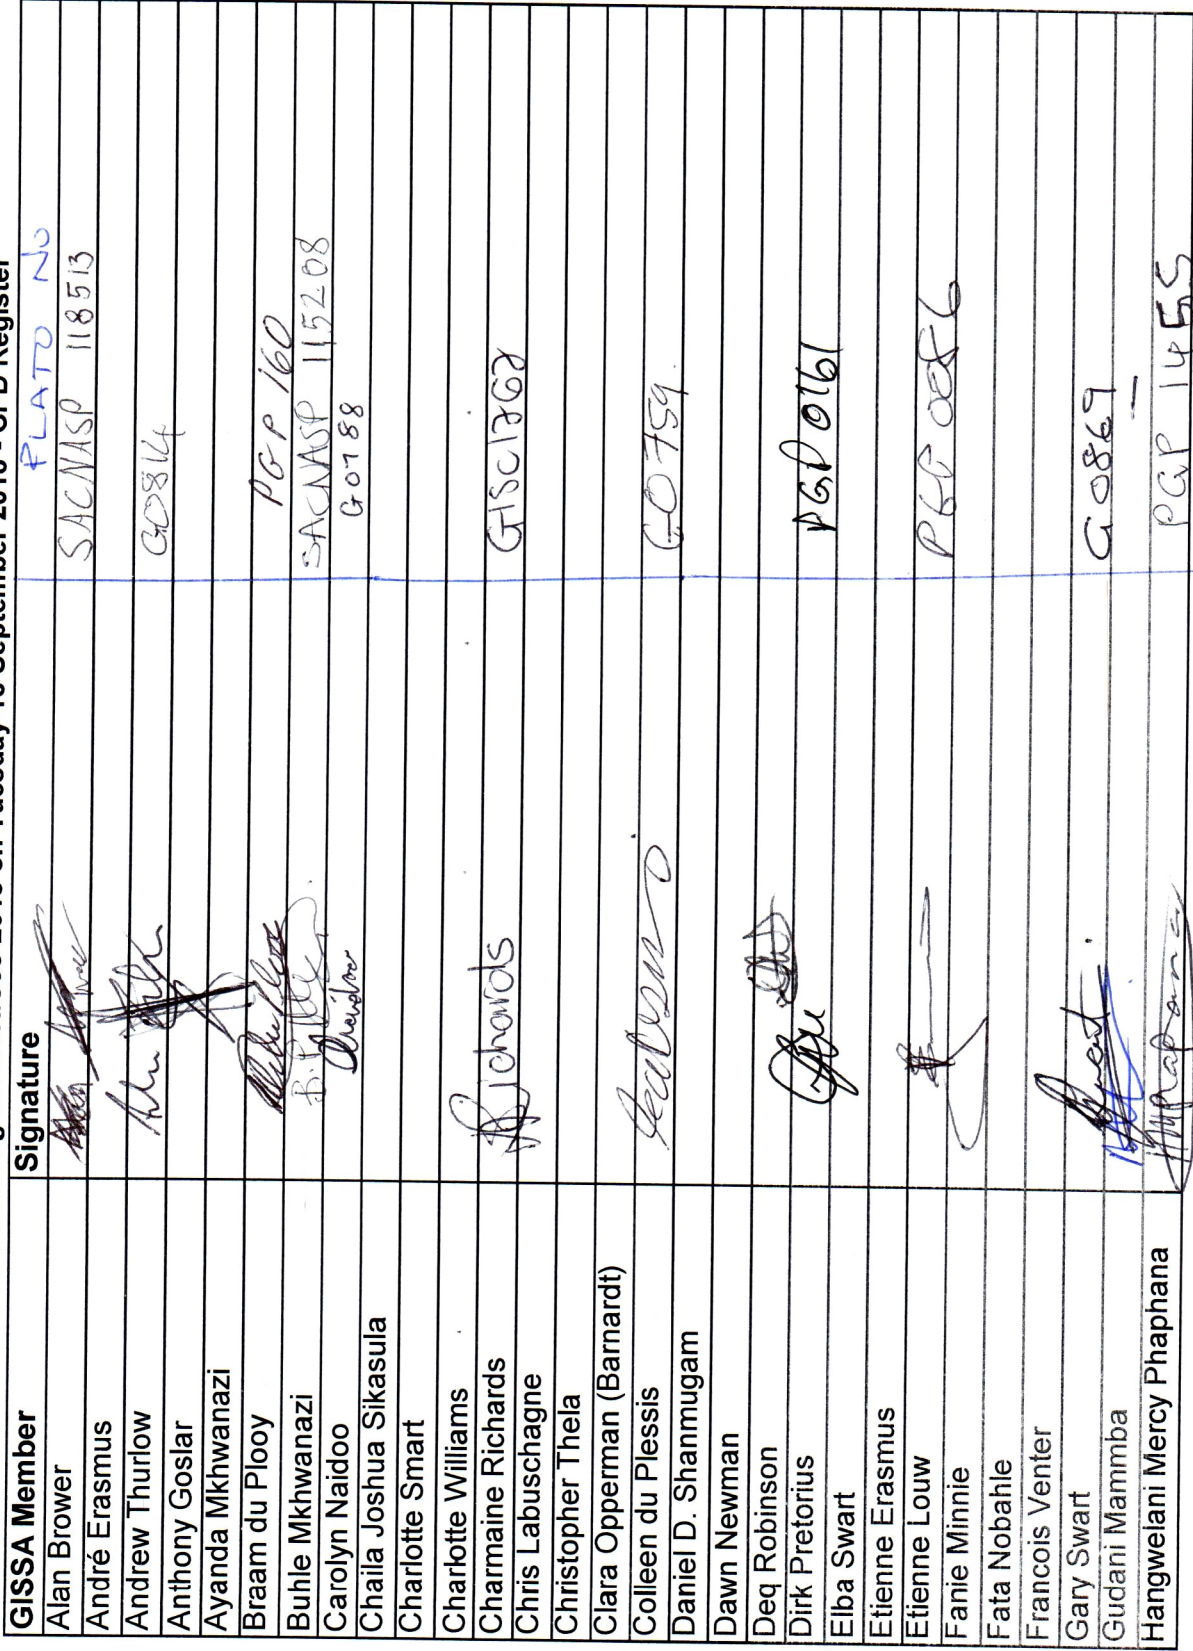 GISSA Member Signature PLATO No
Alan Brower SACNASP 118513
André Erasmus
Andrew Thurlow G0814
Anthony Goslar
Ayanda Mkhwanazi
Braam du Plooy PGP 160
Buhle Mkhwanazi SACNASP 115208
Carolyn Naidoo G0788
Chaila Joshua Sikasula
Charlotte Smart
Charlotte Williams
Charmaine Richards Richards GISc1262
Chris Labuschagne
Christopher Thela
Clara Opperman (Barnardt)
Colleen du Plessis G0759
Daniel D. Shanmugam
Dawn Newman
Deq Robinson
Dirk Pretorius PGP 0161
Elba Swart
Etienne Erasmus
Etienne Louw PGP 0086
Fanie Minnie
Fata Nobahle
Francois Venter
Gary Swart G0869
Gudani Mammba
Hangwelani Mercy Phaphana PGP 1455